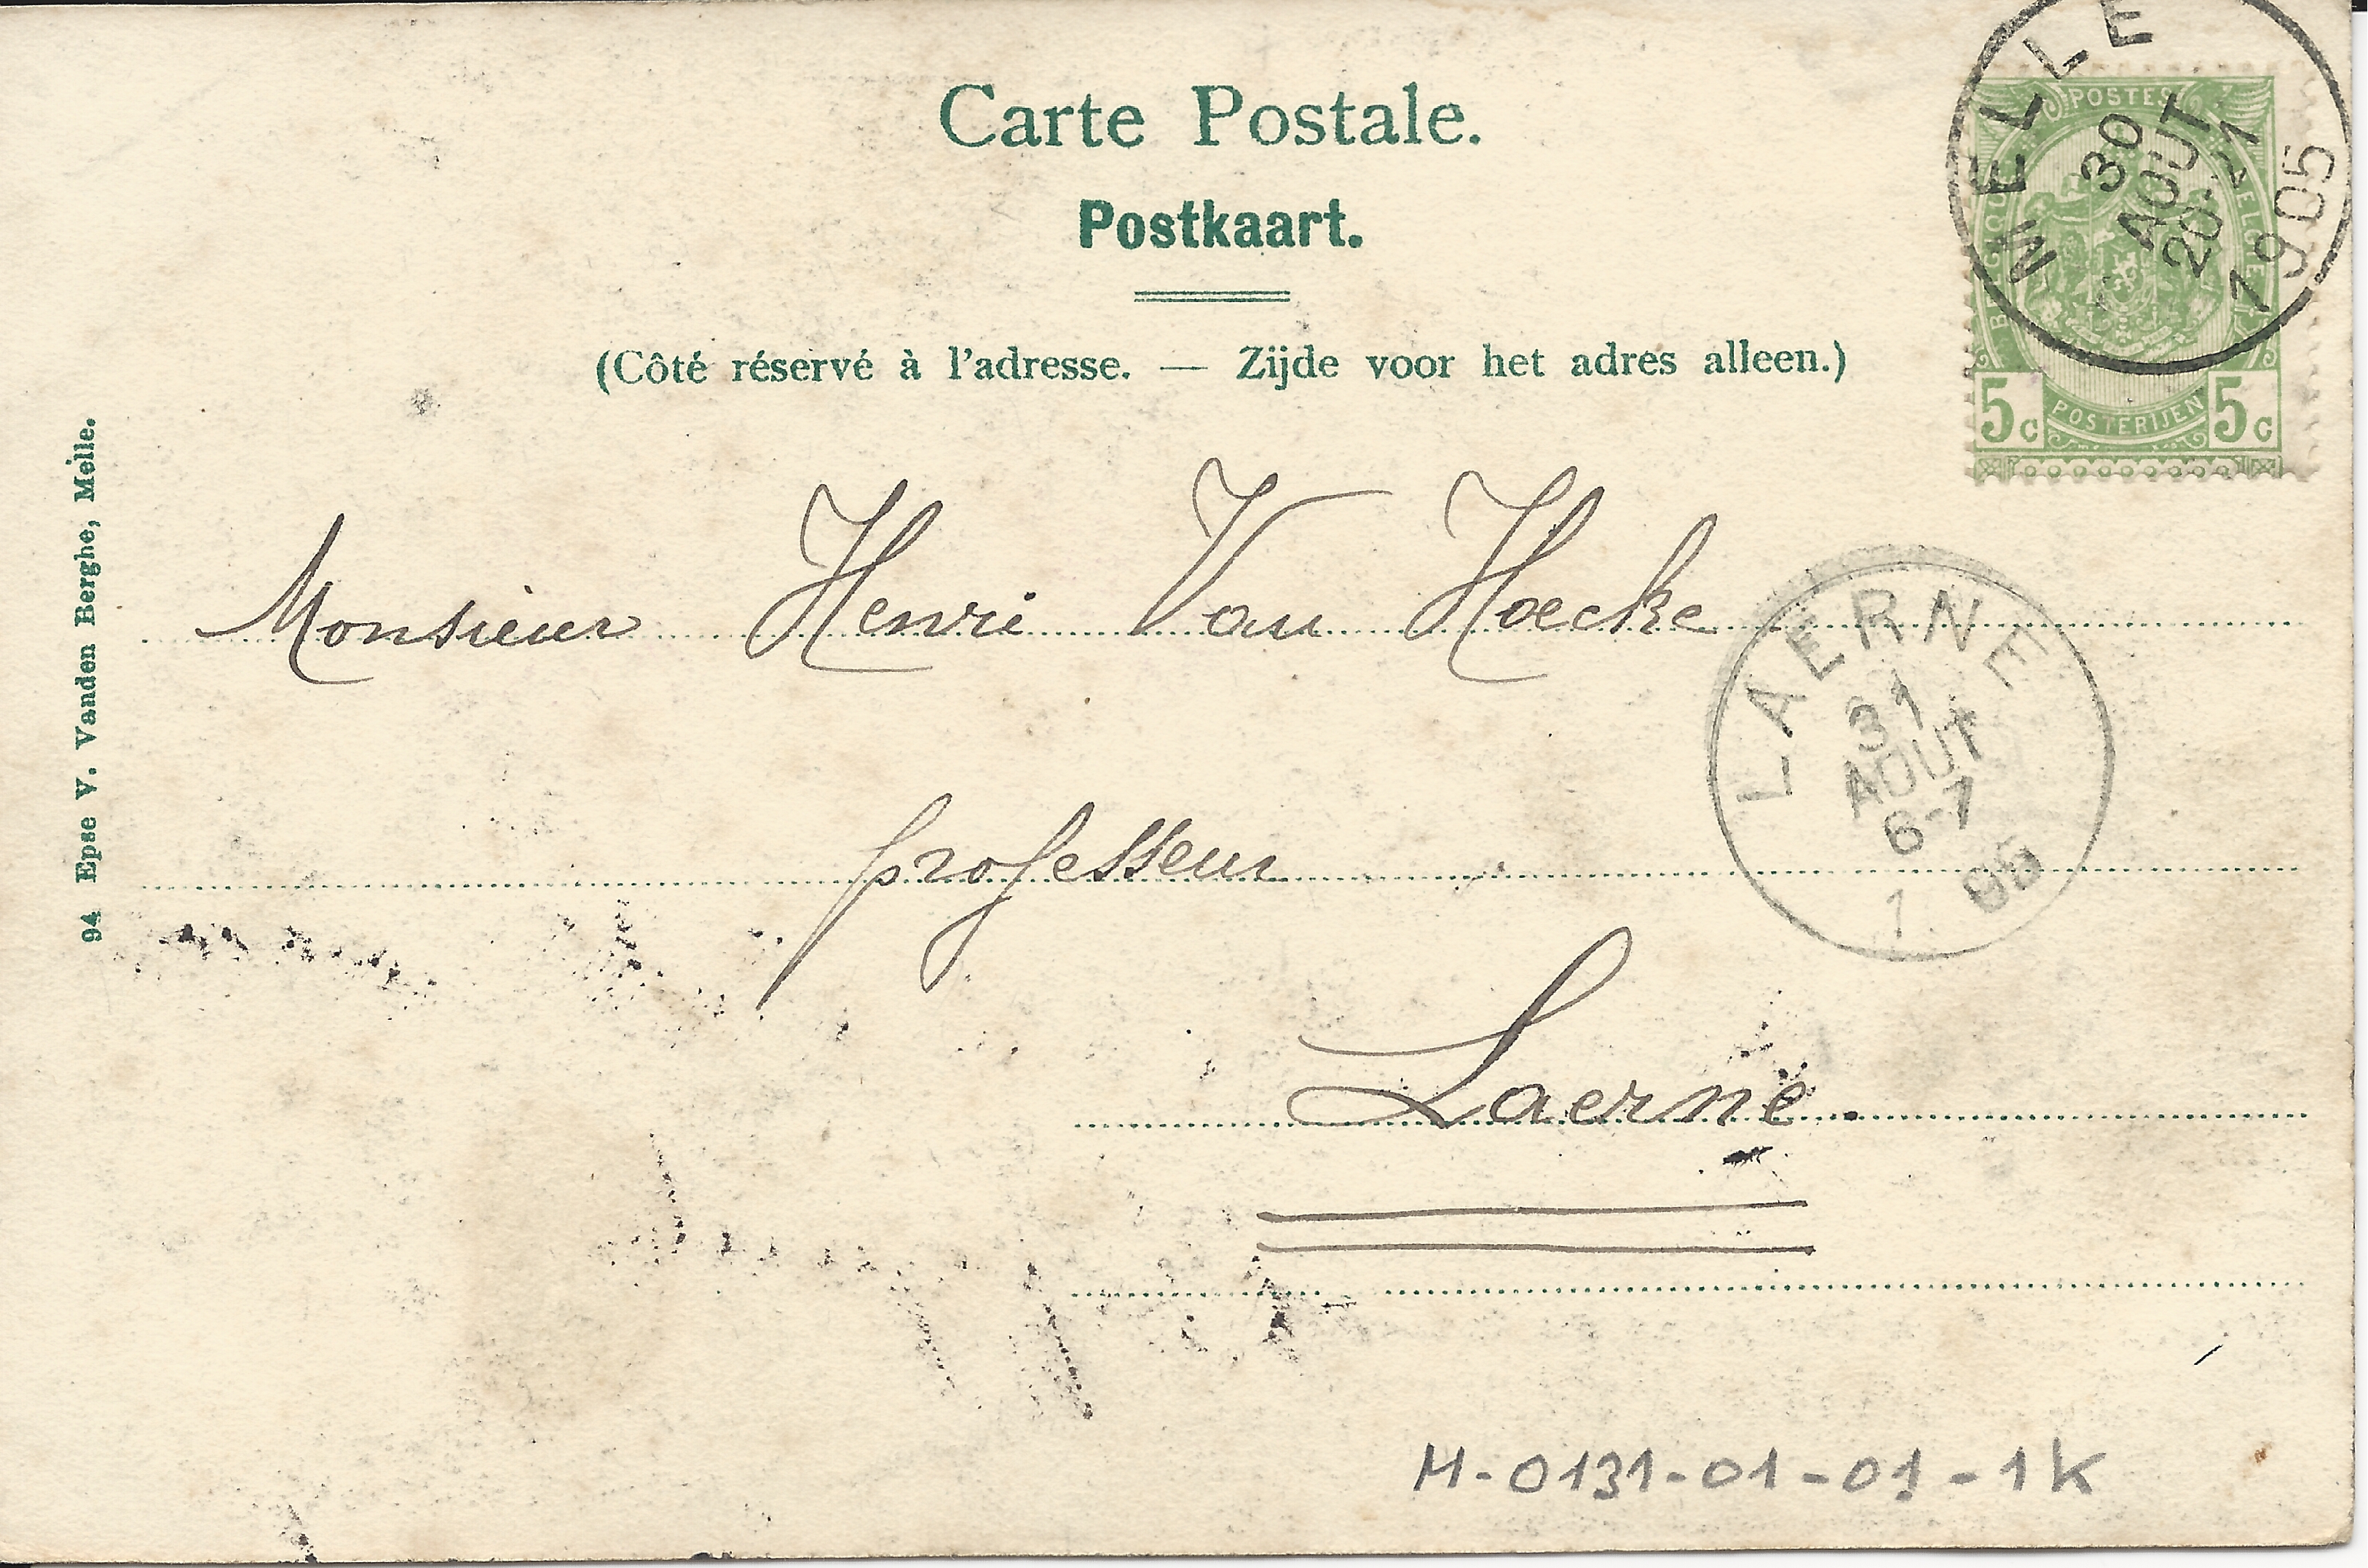 Carte Postale.
Postkaart.
(Côté réservé à l'adresse. — Zijde voor het adres alleen.)
MELLE
30
AOUT
20-21
1905
POSTES
BELGIQUE
BELGIE
5c POSTERIJEN 5c
94 Epse V. Vanden Berghe, Melle.
Monsieur Henri Van Hoecke
professeur
Laerne.
LAERNE
31
AOUT
6-7
1 05
M-0131-01-01-1K